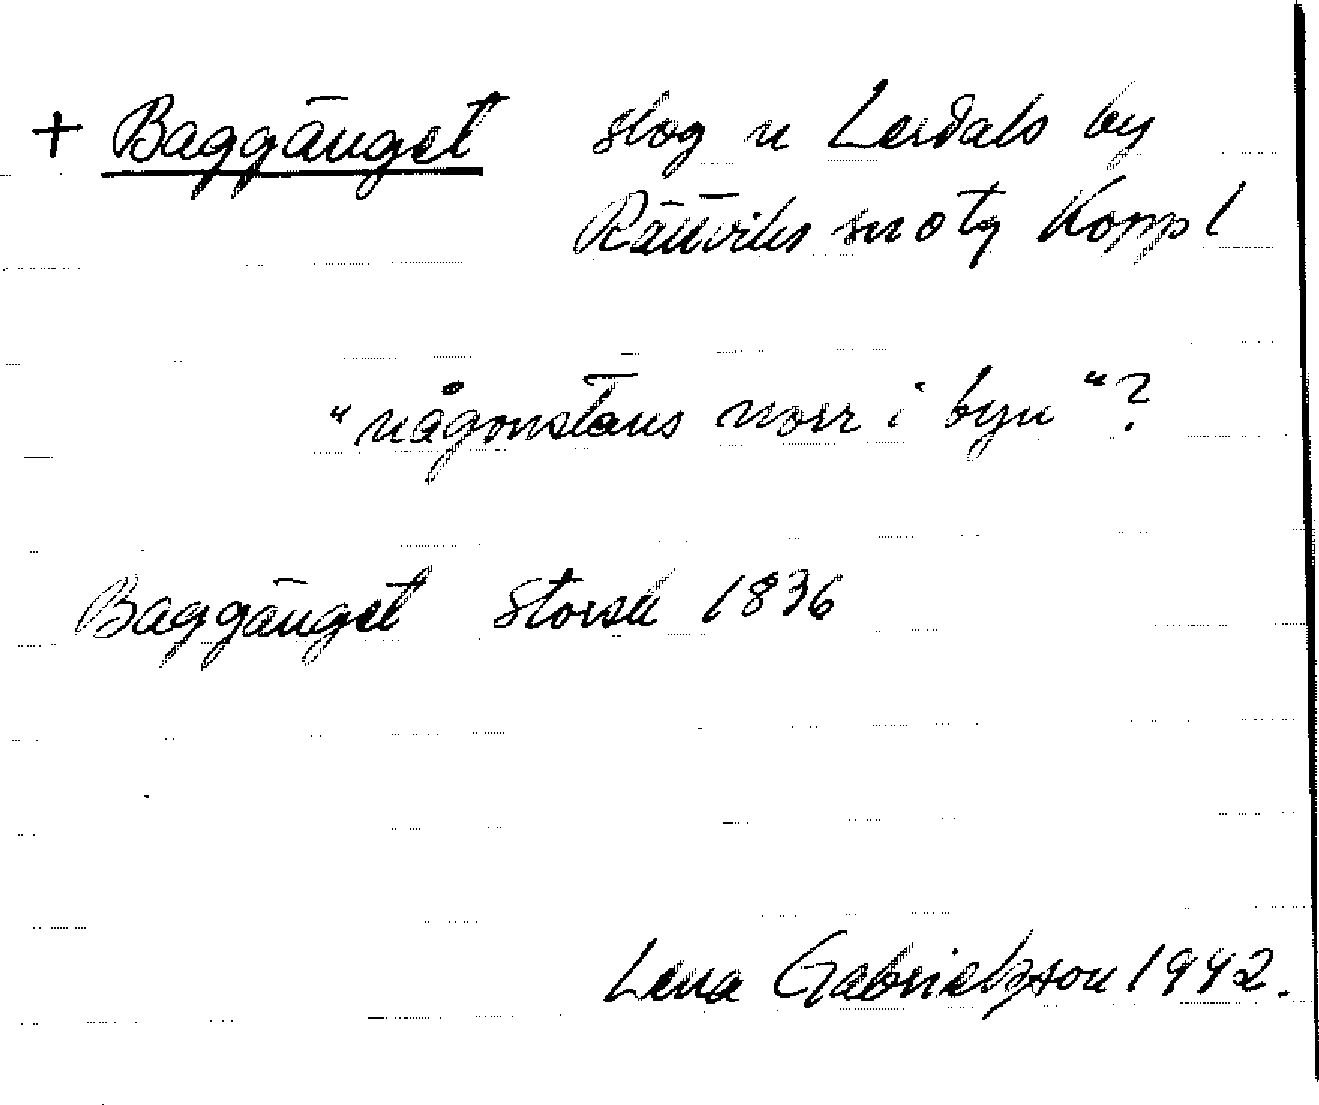 + Baggänget slog u Lerdals by
Rättviks sn o tg Koppl
"någonstans norr i byn"?
Baggänget Storsk 1836
Lena Gabrielsson 1942.